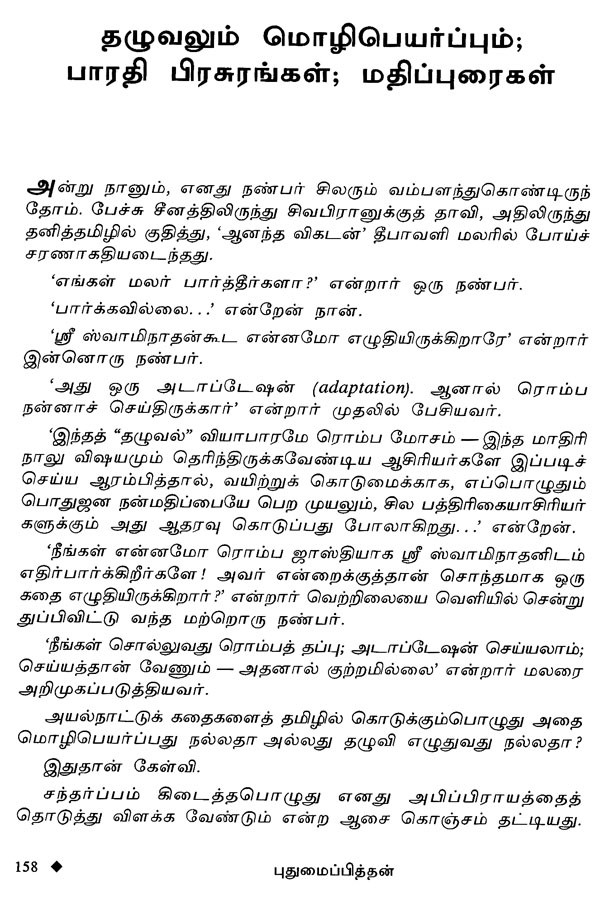 தழுவலும் மொழிபெயர்ப்பும்;
பாரதி பிரசுரங்கள்; மதிப்புரைகள்
அன்று நானும், எனது நண்பர் சிலரும் வம்பளந்துகொண்டிருந்
தோம். பேச்சு சீனத்திலிருந்து சிவபிரானுக்குத் தாவி, அதிலிருந்து
தனித்தமிழில் குதித்து, ‘ஆனந்த விகடன்’ தீபாவளி மலரில் போய்ச்
சரணாகதியடைந்தது.
‘எங்கள் மலர் பார்த்தீர்களா?’ என்றார் ஒரு நண்பர்.
‘பார்க்கவில்லை...’ என்றேன் நான்.
‘ஸ்ரீ ஸ்வாமிநாதன்கூட என்னமோ எழுதியிருக்கிறாரே’ என்றார்
இன்னொரு நண்பர்.
‘அது ஒரு அடாப்டேஷன் (adaptation). ஆனால் ரொம்ப
நன்னாச் செய்திருக்கார்’ என்றார் முதலில் பேசியவர்.
‘இந்தத் “தழுவல்” வியாபாரமே ரொம்ப மோசம் — இந்த மாதிரி
நாலு விஷயமும் தெரிந்திருக்கவேண்டிய ஆசிரியர்களே இப்படிச்
செய்ய ஆரம்பித்தால், வயிற்றுக் கொடுமைக்காக, எப்பொழுதும்
பொதுஜன நன்மதிப்பையே பெற முயலும், சில பத்திரிகையாசிரியர்
களுக்கும் அது ஆதரவு கொடுப்பது போலாகிறது...’ என்றேன்.
‘நீங்கள் என்னமோ ரொம்ப ஜாஸ்தியாக ஸ்ரீ ஸ்வாமிநாதனிடம்
எதிர்பார்க்கிறீர்களே! அவர் என்றைக்குத்தான் சொந்தமாக ஒரு
கதை எழுதியிருக்கிறார்?’ என்றார் வெற்றிலையை வெளியில் சென்று
துப்பிவிட்டு வந்த மற்றொரு நண்பர்.
‘நீங்கள் சொல்லுவது ரொம்பத் தப்பு; அடாப்டேஷன் செய்யலாம்;
செய்யத்தான் வேணும் — அதனால் குற்றமில்லை’ என்றார் மலரை
அறிமுகப்படுத்தியவர்.
அயல்நாட்டுக் கதைகளைத் தமிழில் கொடுக்கும்பொழுது அதை
மொழிபெயர்ப்பது நல்லதா அல்லது தழுவி எழுதுவது நல்லதா?
இதுதான் கேள்வி.
சந்தர்ப்பம் கிடைத்தபொழுது எனது அபிப்பிராயத்தைத்
தொடுத்து விளக்க வேண்டும் என்ற ஆசை கொஞ்சம் தட்டியது.
158 ◆ புதுமைப்பித்தன்